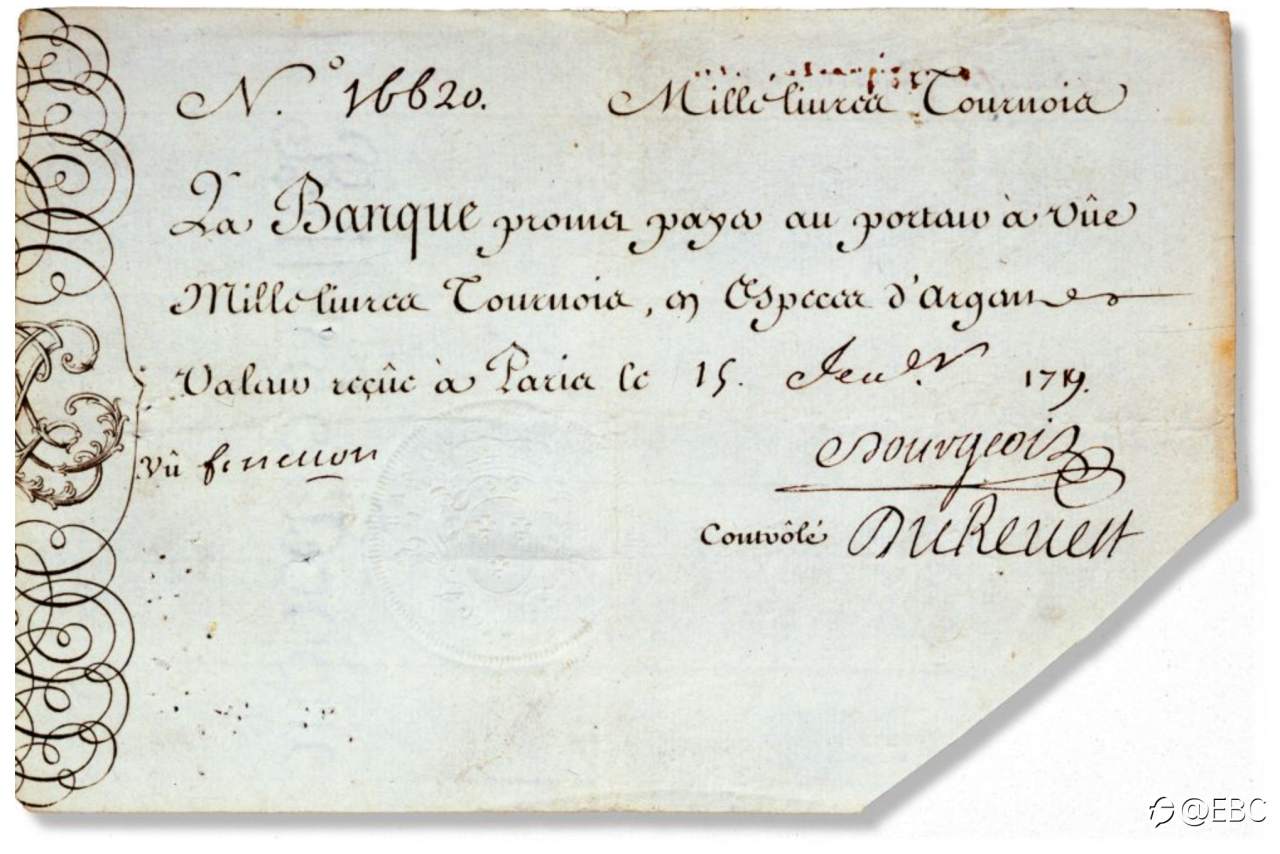 N.° 16620. Mille livres Tournois
La Banque promet payer au porteur à vûe
Mille livres Tournois, en Especes d'Argent
Valeur reçûe à Paris le 15. Jeu.er 1719.
Vû fenellon
Bourgeois
Contrôlé DuReuest
@EBC